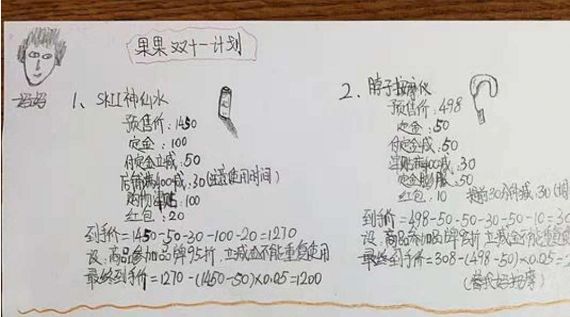 果果双十一计划
妈妈
1、SKII神仙水
预售价:1450
定金:100
付定金立减:50
店铺满400减:30(注意使用时间)
购物津贴:100
红包:20
到手价=1450-50-30-100-20=1270
设:商品参加品牌95折,立减金不能重复使用
最终到手价=1270-(1450-50)×0.05=1200
2、脖子按摩仪
预售价:498
定金:50
付定金减:50
满400减:30
定金:50
红包:10 提前30分钟减30
到手价=498-50-50-30-50-10=30
设:商品参加品牌95折,立减金不能重复使
最终到手价=308-(498-50)×0.05=2